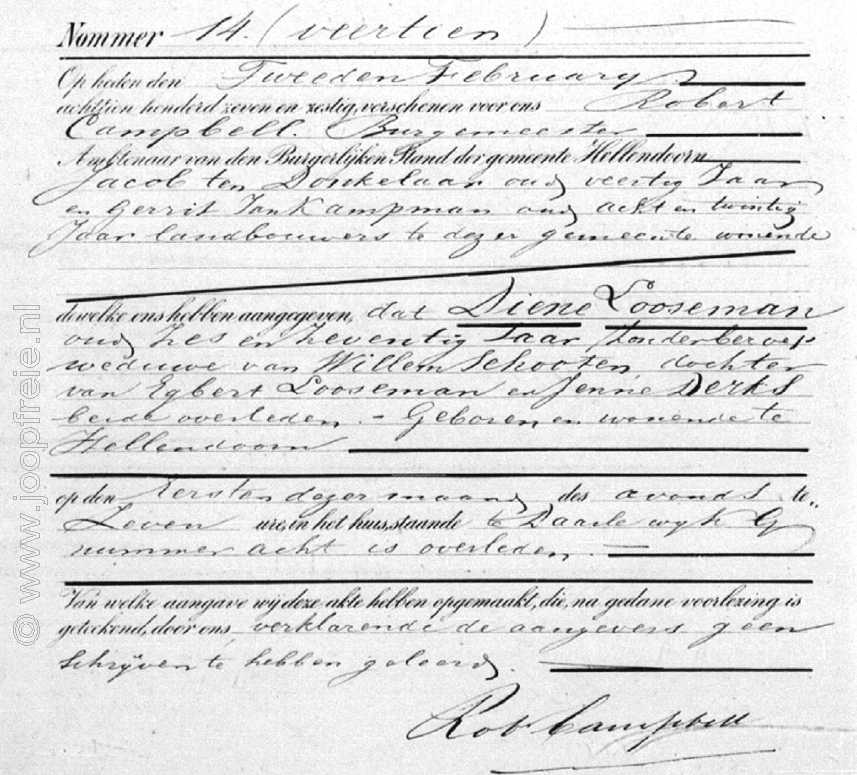 Nommer 14. (veertien)
Op heden den Tweeden February
achttien honderd zeven en zestig, verschenen voor ons Robert
Campbell. Burgemeester
Ambtenaar van den Burgerlijken Stand der gemeente Hellendoorn
Jacob ten Donkelaar oud veertig Jaar
en Gerrit Jan Kampman oud acht en twintig
Jaar landbouwers te dezer gemeente wonende
dewelke ons hebben aangegeven, dat Diene Looseman
oud Zes en Zeventig Jaar, Zonder beroep
weduwe van Willem Schooten, dochter
van Egbert Looseman en Jenne Derks
beide overleden. - Geboren en wonende te
Hellendoorn
op den Eersten dezer maand des avonds te
Zeven ure, in het huis, staande te Daarle wyk G
nummer acht is overleden. -
Van welke aangave wij deze akte hebben opgemaakt, die, na gedane voorlezing is
geteekend, door ons, verklarende de aangevers geen
Schrijven te hebben geleerd.
Rob. Campbell
© www.joopfreie.nl